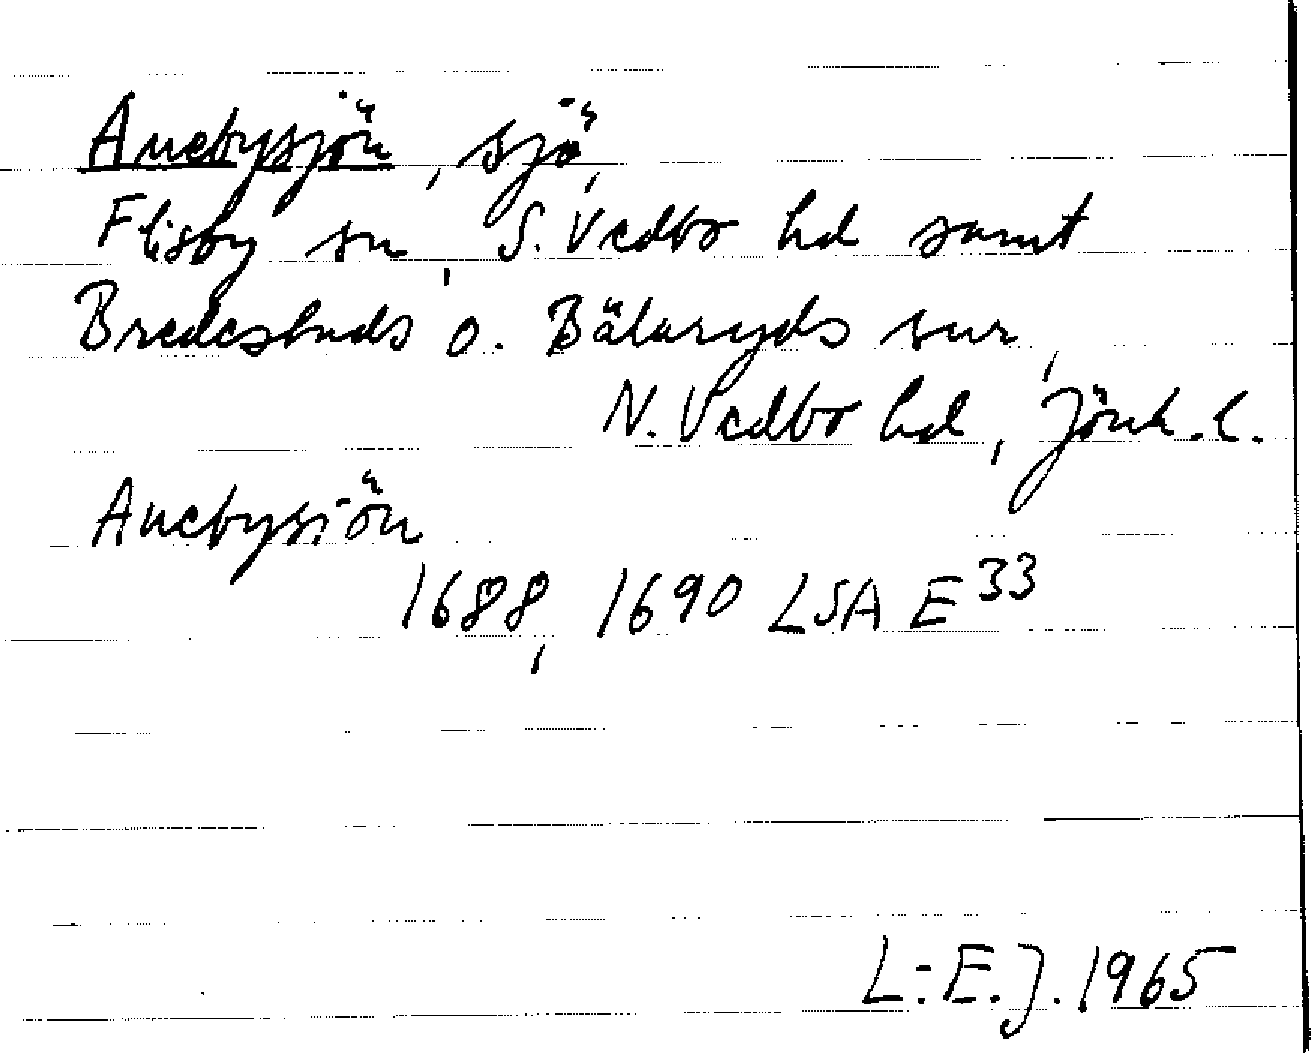 Anebysjön, sjö,
Flisby sn, S. Vedbo hd samt
Bredestads o. Bälaryds snr,
N. Vedbo hd, Jönk. l.
Anebysiön
1688, 1690 LSA E 33
L:E.J. 1965